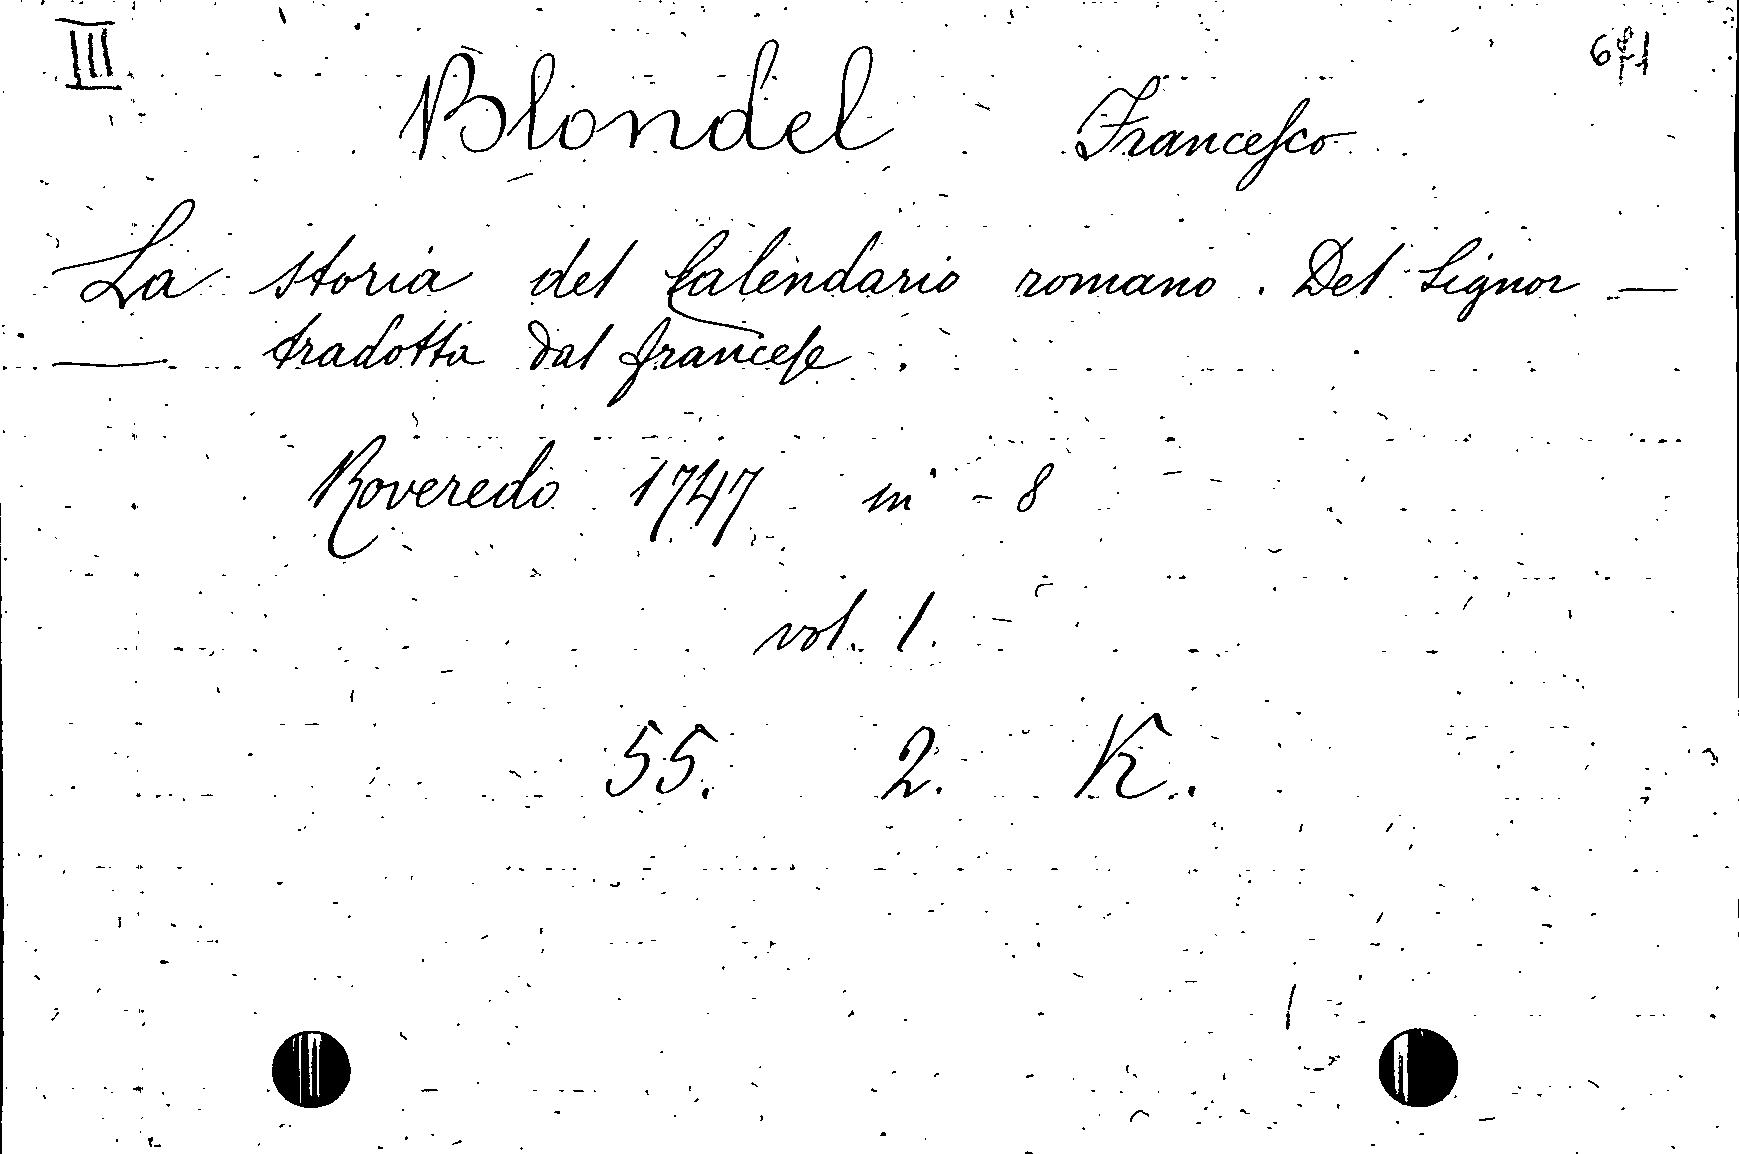 III
Blondel Francesco
La storia del Calendario romano. Del Signor —
— tradotta dal francese.
Roveredo 1747 in - 8
vol. 1.
55. 2. K.